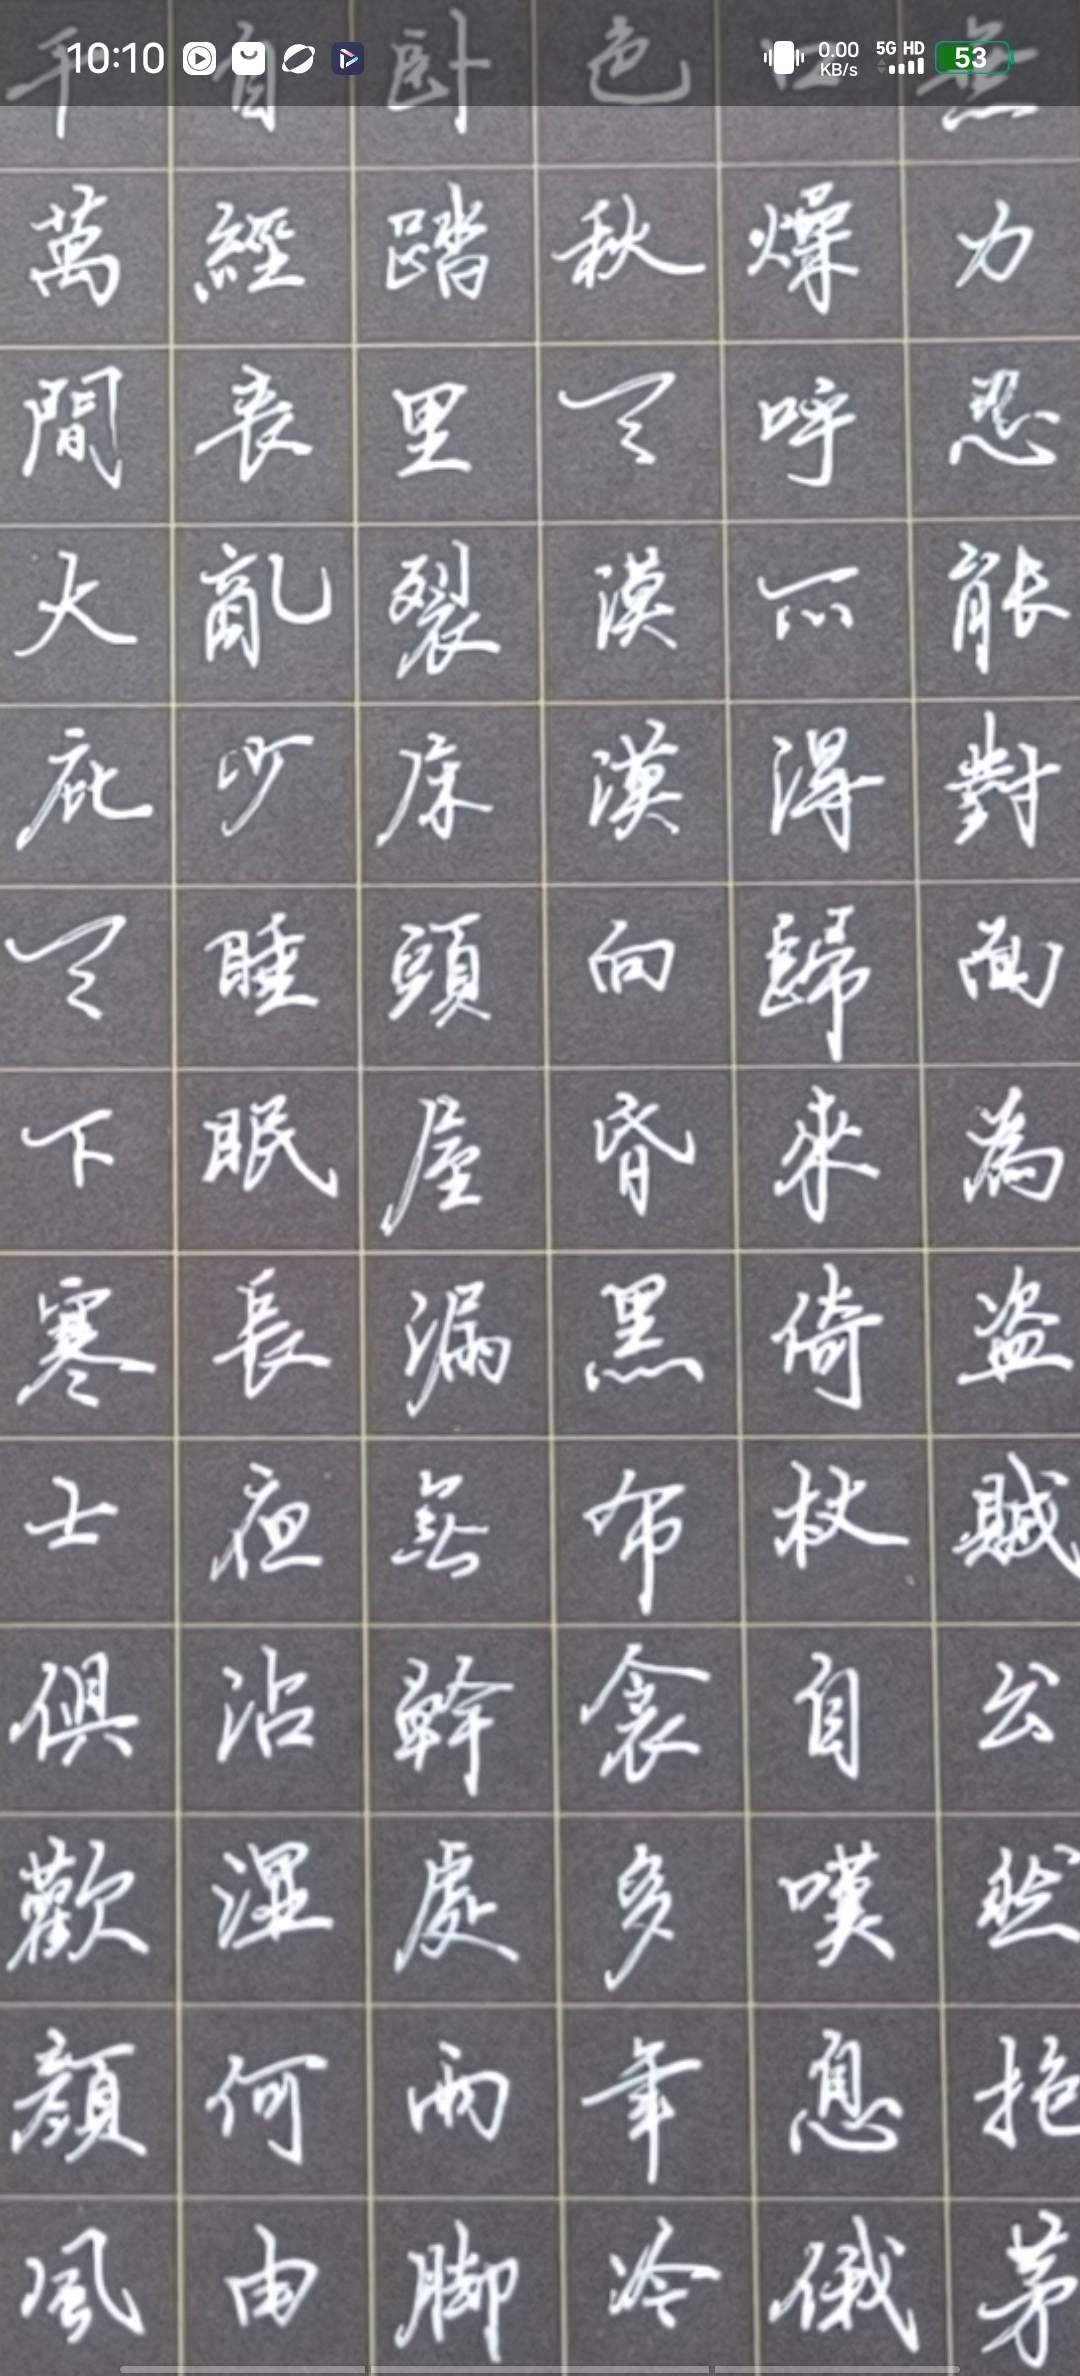 10:10 0.00 KB/s 5G HD 53
無力忍能對面為盜賊公然抱茅
燥呼不得歸來倚杖自嘆息俄
色秋天漠漠向昏黑布衾多年冷
卧踏里裂床頭屋漏無幹處雨腳
自經喪亂少睡眠長夜沾濕何由
千萬間大庇天下寒士俱歡顏風